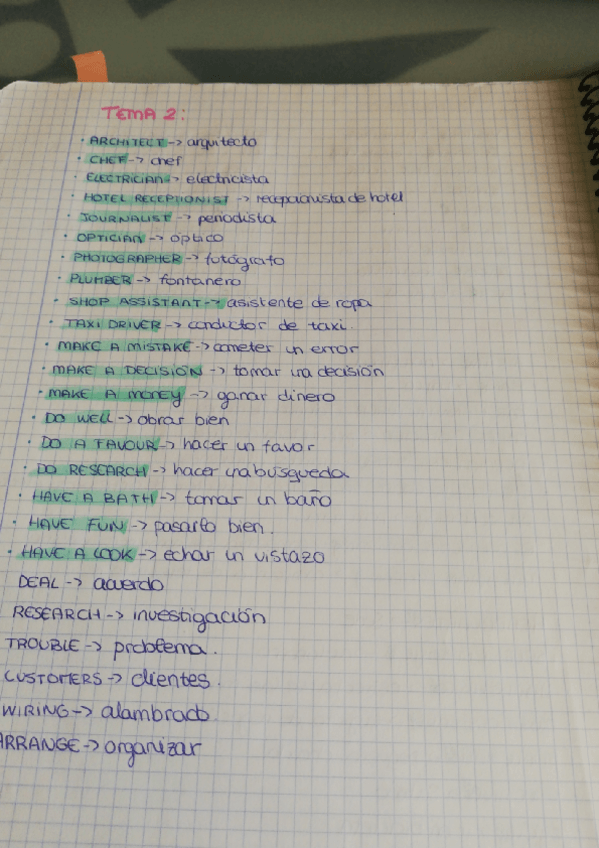 TEMA 2:
· ARCHITECT -> arquitecto
· CHEF -> chef
· ELECTRICIAN -> electricista
· HOTEL RECEPTIONIST -> recepcionista de hotel
· JOURNALIST -> periodista
· OPTICIAN -> óptico
· PHOTOGRAPHER -> fotógrafo
· PLUMBER -> fontanero
· SHOP ASSISTANT -> asistente de ropa
· TAXI DRIVER -> conductor de taxi.
· MAKE A MISTAKE -> cometer un error
· MAKE A DECISIÓN -> tomar una decisión
· MAKE A MONEY -> ganar dinero
· DO WELL -> obrar bien
· DO A FAVOUR -> hacer un favor
· DO RESEARCH -> hacer una busqueda
· HAVE A BATH -> tomar un baño
· HAVE FUN -> pasarlo bien.
· HAVE A LOOK -> echar un vistazo
DEAL -> acuerdo
RESEARCH -> investigación
TROUBLE -> problema.
CUSTOMERS -> clientes.
WIRING -> alambrado
ARRANGE -> organizar